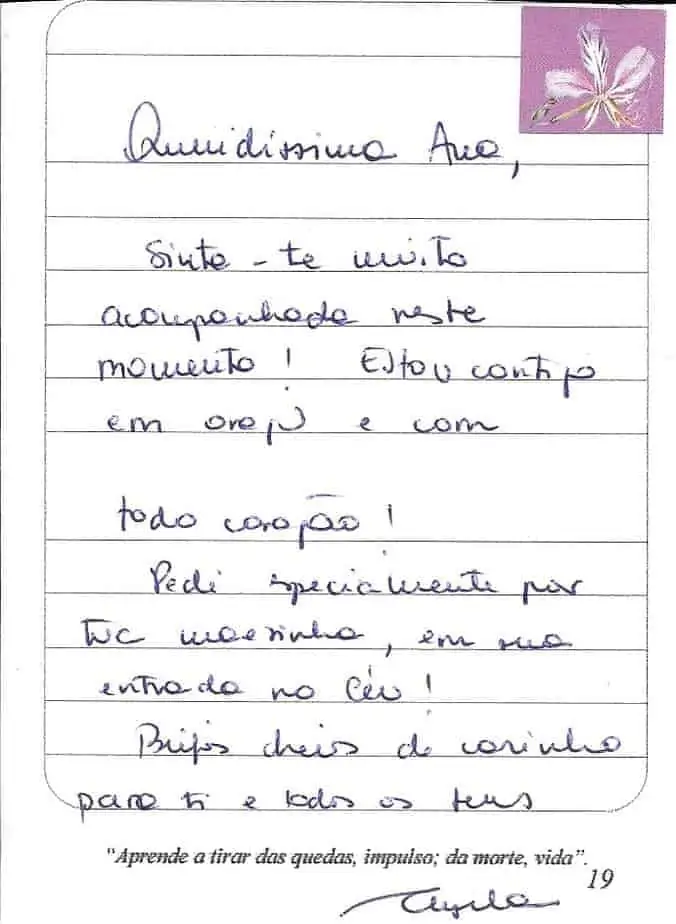 Queridíssima Ana,
Sinte-te muito
acompanhada neste
momento! Estou contigo
em oração e com
todo coração!
Pedi especialmente por
tua mãezinha, em sua
entrada no Céu!
Beijos cheios de carinho
para ti e todos os teus
"Aprende a tirar das quedas, impulso; da morte, vida".
19